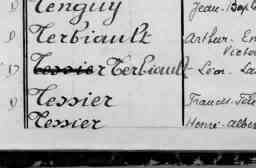 Tenguy Jean-Bapt
D Terbiault Arthur-Em
Victor
D Tessier Terbiault Léon-La
D Tessier Francis-Féli
Tessier Henri-Alber